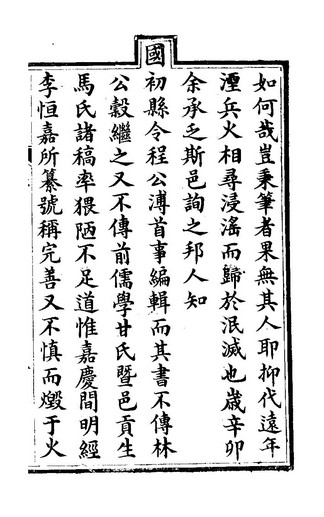 如何哉豈秉筆者果無其人耶抑代遠年
湮兵火相尋浸滛而歸於泯滅也嵗辛卯
余承乏斯邑詢之邦人知
國
初縣令程公溥首事編輯而其書不傳林
公穀繼之又不傳前儒學甘氏暨邑貢生
馬氏諸稿率猥陋不足道惟嘉慶間明經
李恒嘉所纂號稱完善又不慎而燬于火